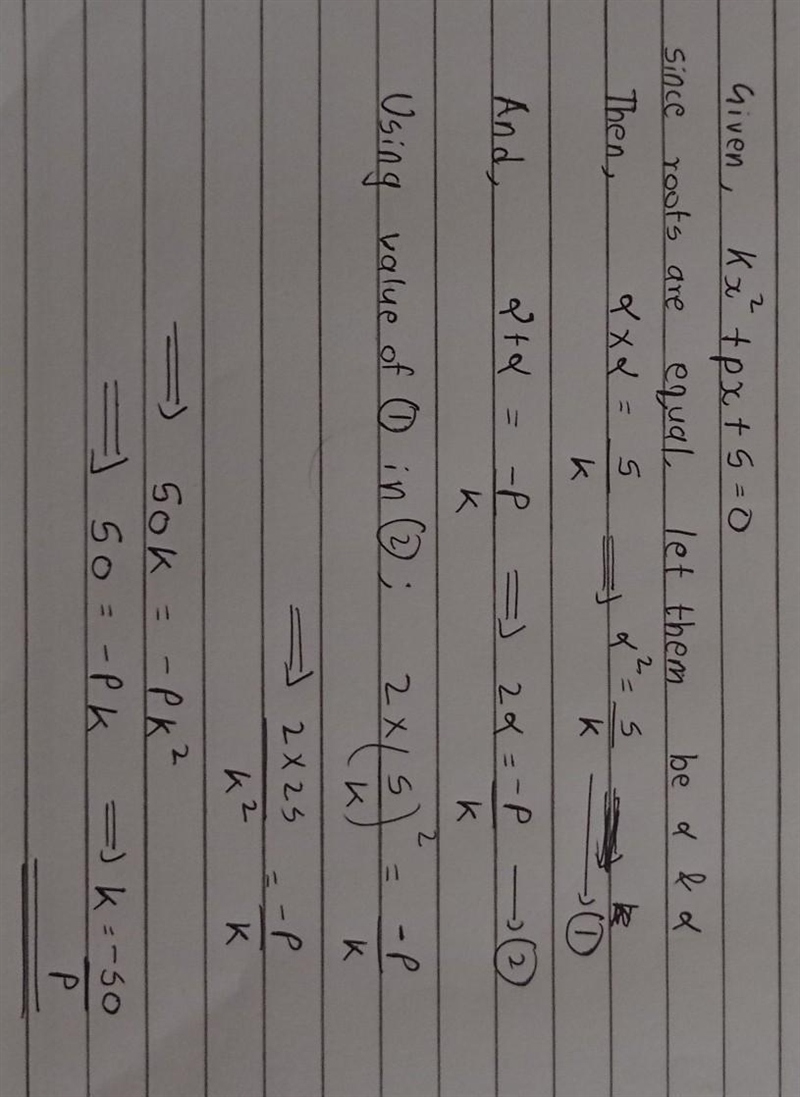 Given, kx² + px + 5 = 0
since roots are equal, let them be α & α
Then, α × α = 5/k ⟹ α² = 5/k → ①
And, α + α = -p/k ⟹ 2α = -p/k → ②
Using value of ① in ②; 2 × (5/k)² = -p/k
⟹ 2 × 25/k² = -p/k
⟹ 50k = -pk²
⟹ 50 = -pk ⟹ k = -50/p